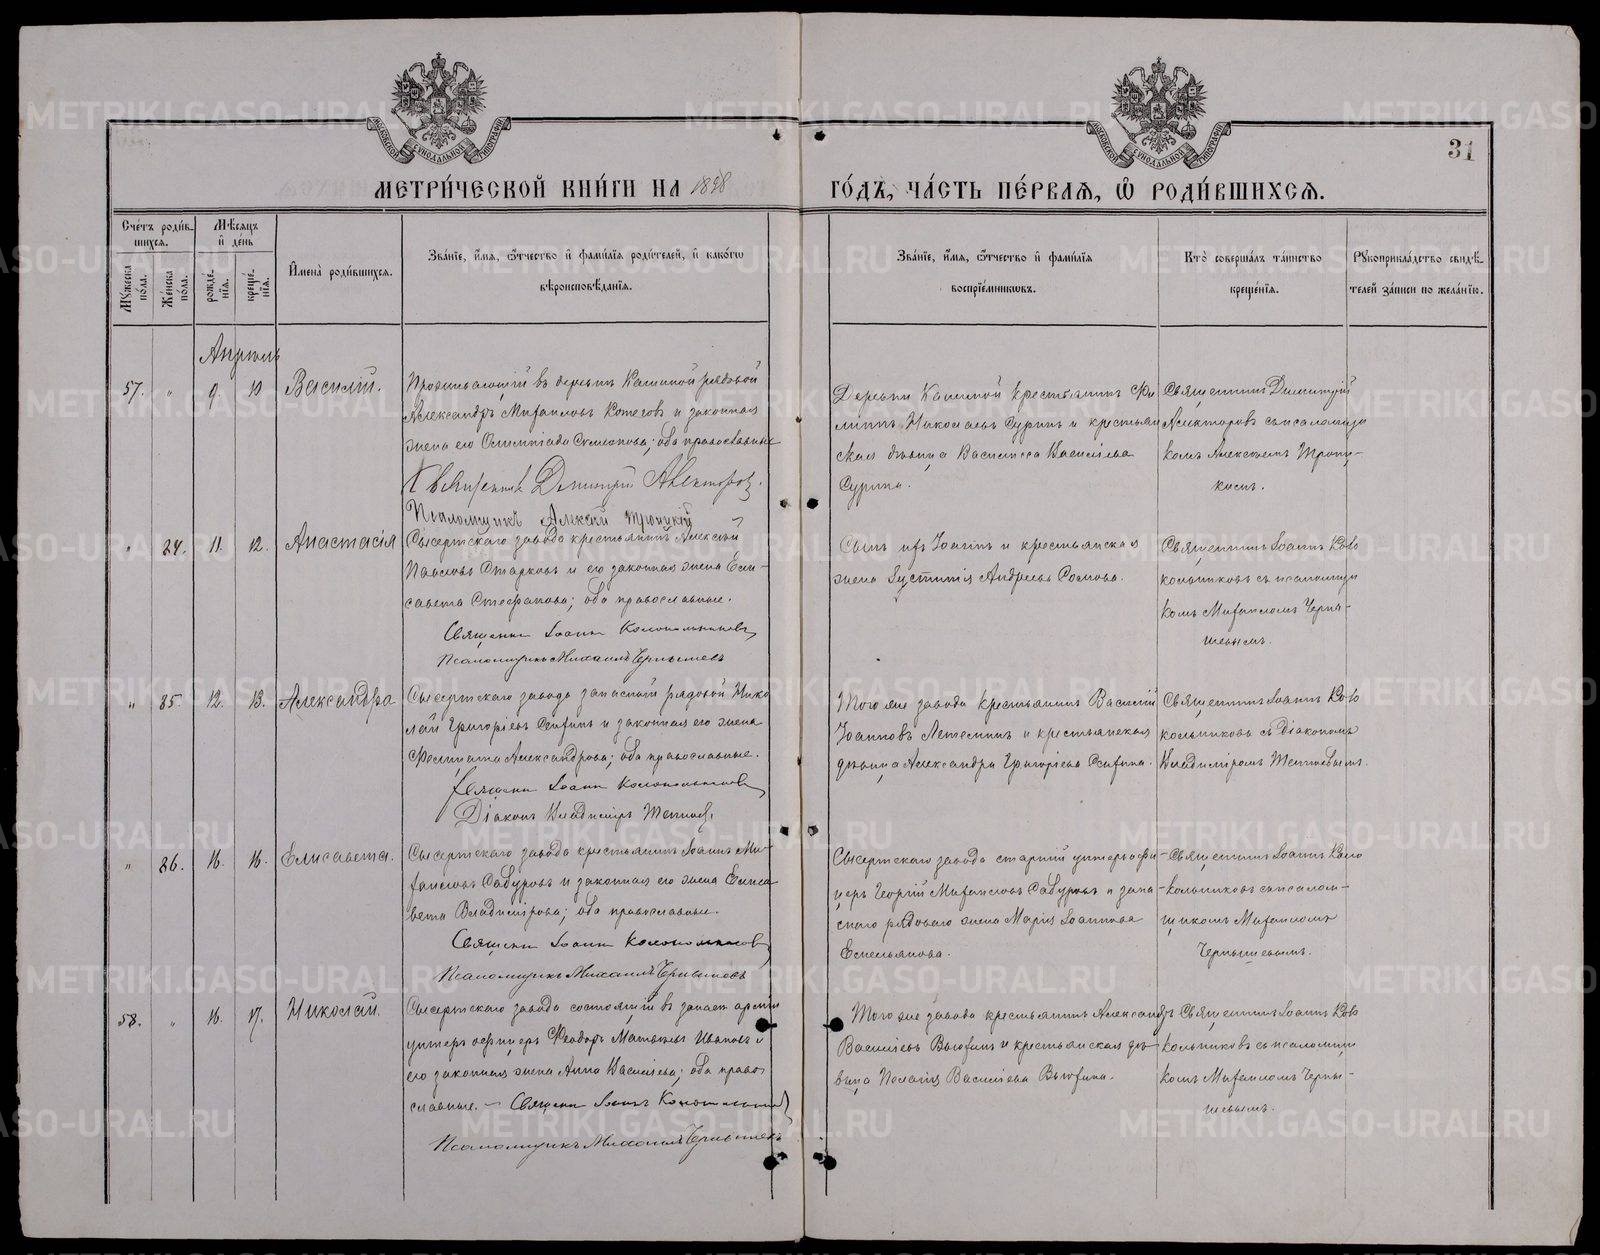 МОСКОВСКОЙ СѴНОДАЛЬНОЙ ТИПОГРАФІИ
МОСКОВСКОЙ СѴНОДАЛЬНОЙ ТИПОГРАФІИ
31
МЕТРИ́ЧЕСКОЙ КНИ́ГИ НА 1898
ГО́ДЪ, ЧА́СТЬ ПЕ́РВАЯ, Ѡ РОДИ́ВШИХСЯ.
Сче́тъ роди́в-
шихся.
Мꙋжеска по́ла.
Же́нска по́ла.
Мѣ́сяцъ
и҆ де́нь
рожде́-
нїя.
креще́-
нїя.
И҆мена̀ роди́вшихся.
Зва́нїе, и҆́мя, ѻ҆́тчество и҆ фами́лїя роди́телей, и҆ како́гѡ
вѣроисповѣ́данїя.
Зва́нїе, и҆́мя, ѻ҆́тчество и҆ фами́лїя
воспрїе́мникѡвъ.
Кто̀ соверша́лъ та́инство
креще́нїя.
Рꙋкоприкла́дство свидѣ́-
телей за́писи по жела́нїю.
Апрѣль
57. " 9. 10 Василій.
Проживающій въ деревнѣ Кашиной рядовой
Александръ Михаиловъ Котеговъ и законная
жена его Олимпіада Симеонова; оба православные
Священникъ Димитрій Алекторовъ.
Псаломщикъ Алексій Троицкій
Деревни Кашиной крестьянинъ Фи
липпъ Николаевъ Суринъ и крестьян
ская дѣвица Василисса Васильева
Сурина.
Священникъ Димитрій
Алекторовъ съ псаломщи
комъ Алексѣемъ Троиц-
кимъ.
" 84. 11. 12. Анастасія
Сысертскаго завода крестьянинъ Алексій
Павловъ Старковъ и его законная жена Ели-
савета Стефанова; оба православные.
Священникъ Іоаннъ Колокольниковъ
Псаломщикъ Михаилъ Чернышевъ
Сынъ ихъ Іоаннъ и крестьянская
жена Іустинія Андреева Сомова.
Священникъ Іоаннъ Коло
кольниковъ съ псаломщи
комъ Михаиломъ Черны-
шевымъ.
" 85. 12. 13. Александра
Сысертскаго завода запасной рядовой Нико
лай Григоріевъ и законная его жена
Александрова; оба православные.
Священникъ Іоаннъ Колокольниковъ
Діаконъ Владиміръ
Того же завода крестьянинъ Василій
Іоанновъ Летеминъ и крестьянская
дѣвица Александра Григоріева
Священникъ Іоаннъ Коло
кольниковъ съ Діакономъ
Владиміромъ
" 86. 16. 16. Елисавета.
Сысертскаго завода крестьянинъ Іоаннъ Ми-
хаиловъ Сабуровъ и законная его жена Елиса
вета Владимірова; оба православные.
Священникъ Іоаннъ Колокольниковъ
Псаломщикъ Михаилъ Чернышевъ
Сысертскаго завода старшій унтеръ офи-
церъ Георгій Михаиловъ Сабуровъ и запа-
снаго рядоваго жена Марія Іоаннова
Емельянова.
Священникъ Іоаннъ Коло
кольниковъ съ псалом-
щикомъ Михаиломъ
Чернышевымъ.
58. " 16. 17. Николай.
Сысертскаго завода состоящій въ запасѣ арміи
унтеръ офицеръ Феодоръ Матвѣевъ Ивановъ и
его законная жена Анна Васильева; оба право-
славные. - Священникъ Іоаннъ Колокольниковъ
Псаломщикъ Михаилъ Чернышевъ
Того же завода крестьянинъ Александръ
Васильевъ Вьюхинъ и крестьянская дѣ-
вица Пелагія Васильева Вьюхина.
Священникъ Іоаннъ Коло
кольниковъ съ псаломщи
комъ Михаиломъ Черны-
шевымъ.
METRIKI.GASO-URAL.RU